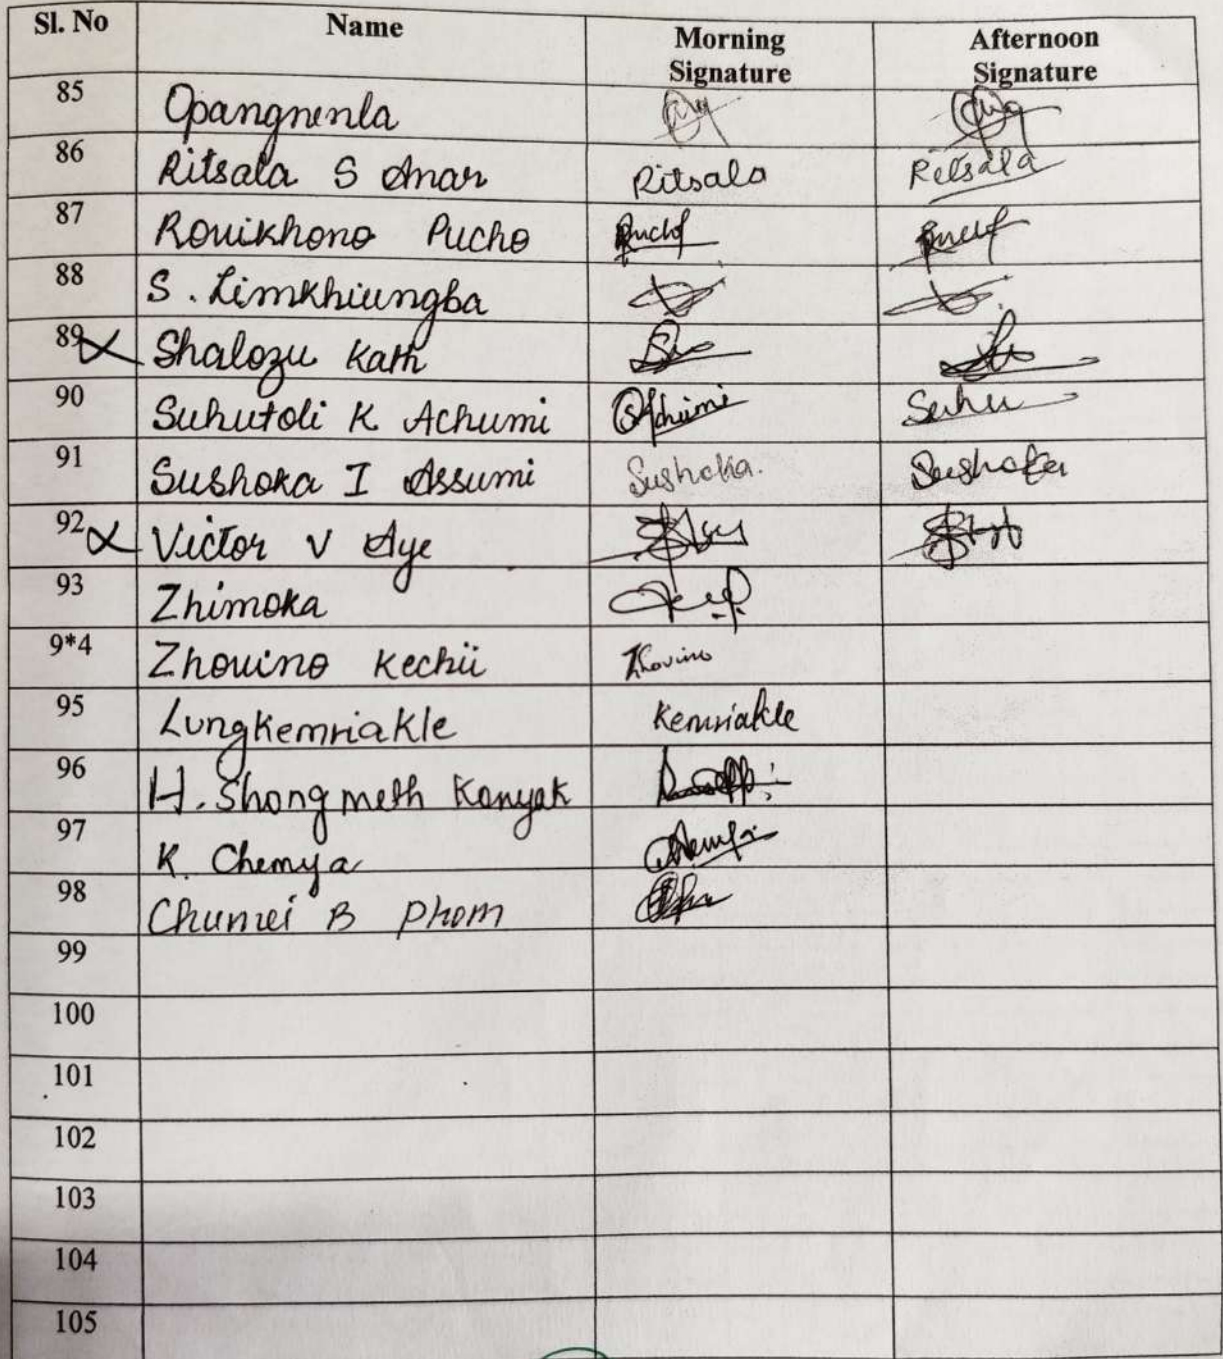 Sl. No Name Morning Signature Afternoon Signature
85 Opangnenla
86 Ritsala S Anar Ritsala Ritsala
87 Rouikhono Pucho
88 S. Limkhiungba
89 Shalozu Kath
90 Suhutoli K Achumi Achumi Suhu
91 Sushoka I Assumi Sushoka. Sushoka
92 Victor V Aye
93 Zhimoka
9*4 Zhouino Kechü Zhovino
95 Lungkemriakle Kemriakle
96 H. Shongmeth Konyak
97 K. Chemya Chemya
98 Chumei B Phom
99
100
101
102
103
104
105